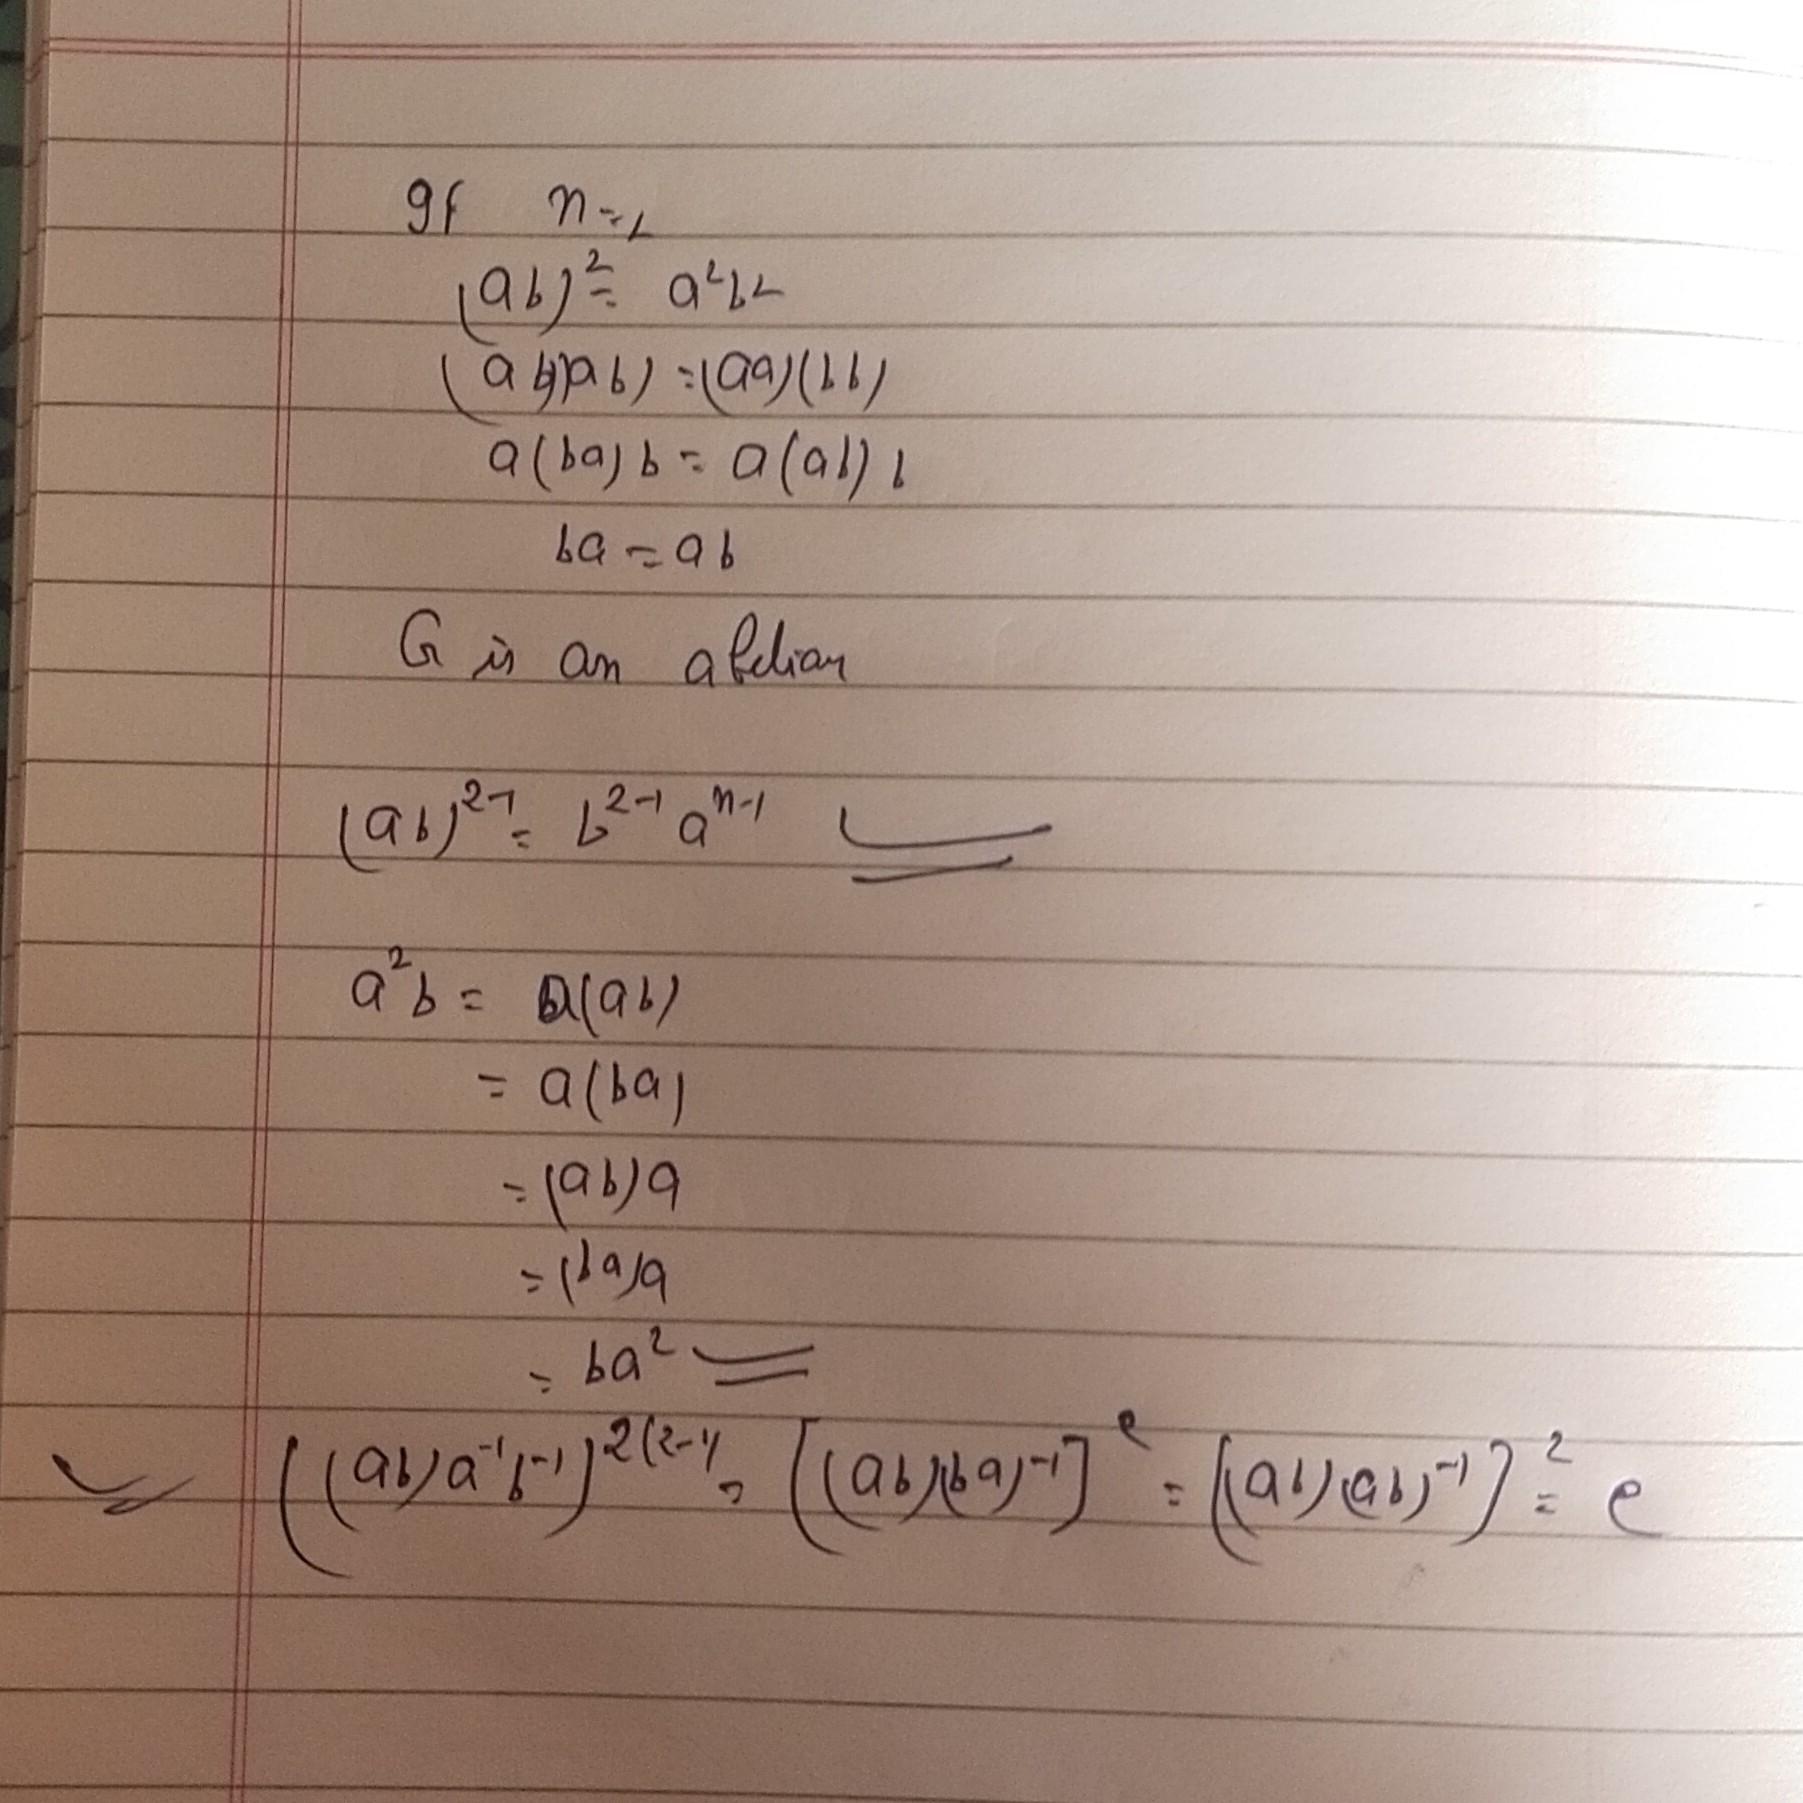 If n=2
(ab)² = a²b²
(ab)(ab) = (aa)(bb)
a(ba)b = a(ab)b
ba = ab
G is an abelian
(ab)²⁻¹ = b²⁻¹ aⁿ⁻¹
a²b = a(ab)
= a(ba)
= (ab)a
= (ba)a
= ba²
((ab)a⁻¹b⁻¹)²⁽²⁻¹⁾ = [(ab)(ba)⁻¹]² = [(ab)(ab)⁻¹]² = e